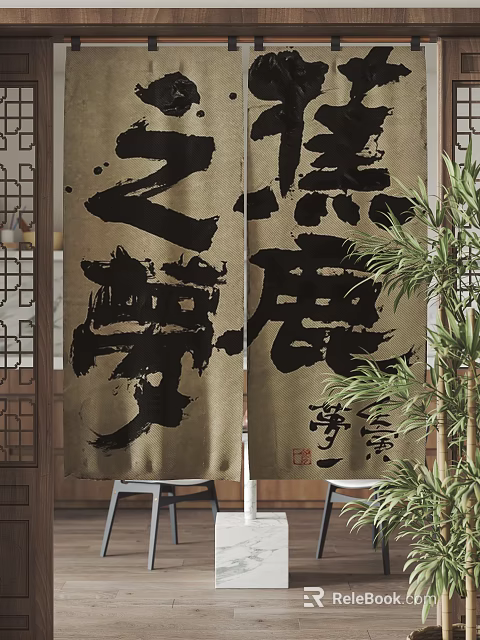 蕉鹿
之夢
壬寅
夢一
ReleBook.com